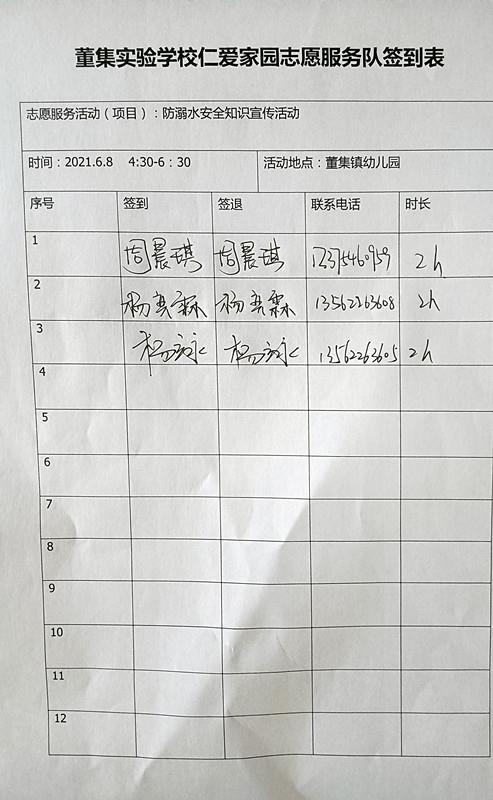 董集实验学校仁爱家园志愿服务队签到表
志愿服务活动（项目）：防溺水安全知识宣传活动
时间：2021.6.8 4:30-6：30 活动地点：董集镇幼儿园
序号 签到 签退 联系电话 时长
1 周晨琪 周晨琪 2h
2 杨奕霖 杨奕霖 13562263608 2h
3 杨 杨 13562263605 2h
4
5
6
7
8
9
10
11
12